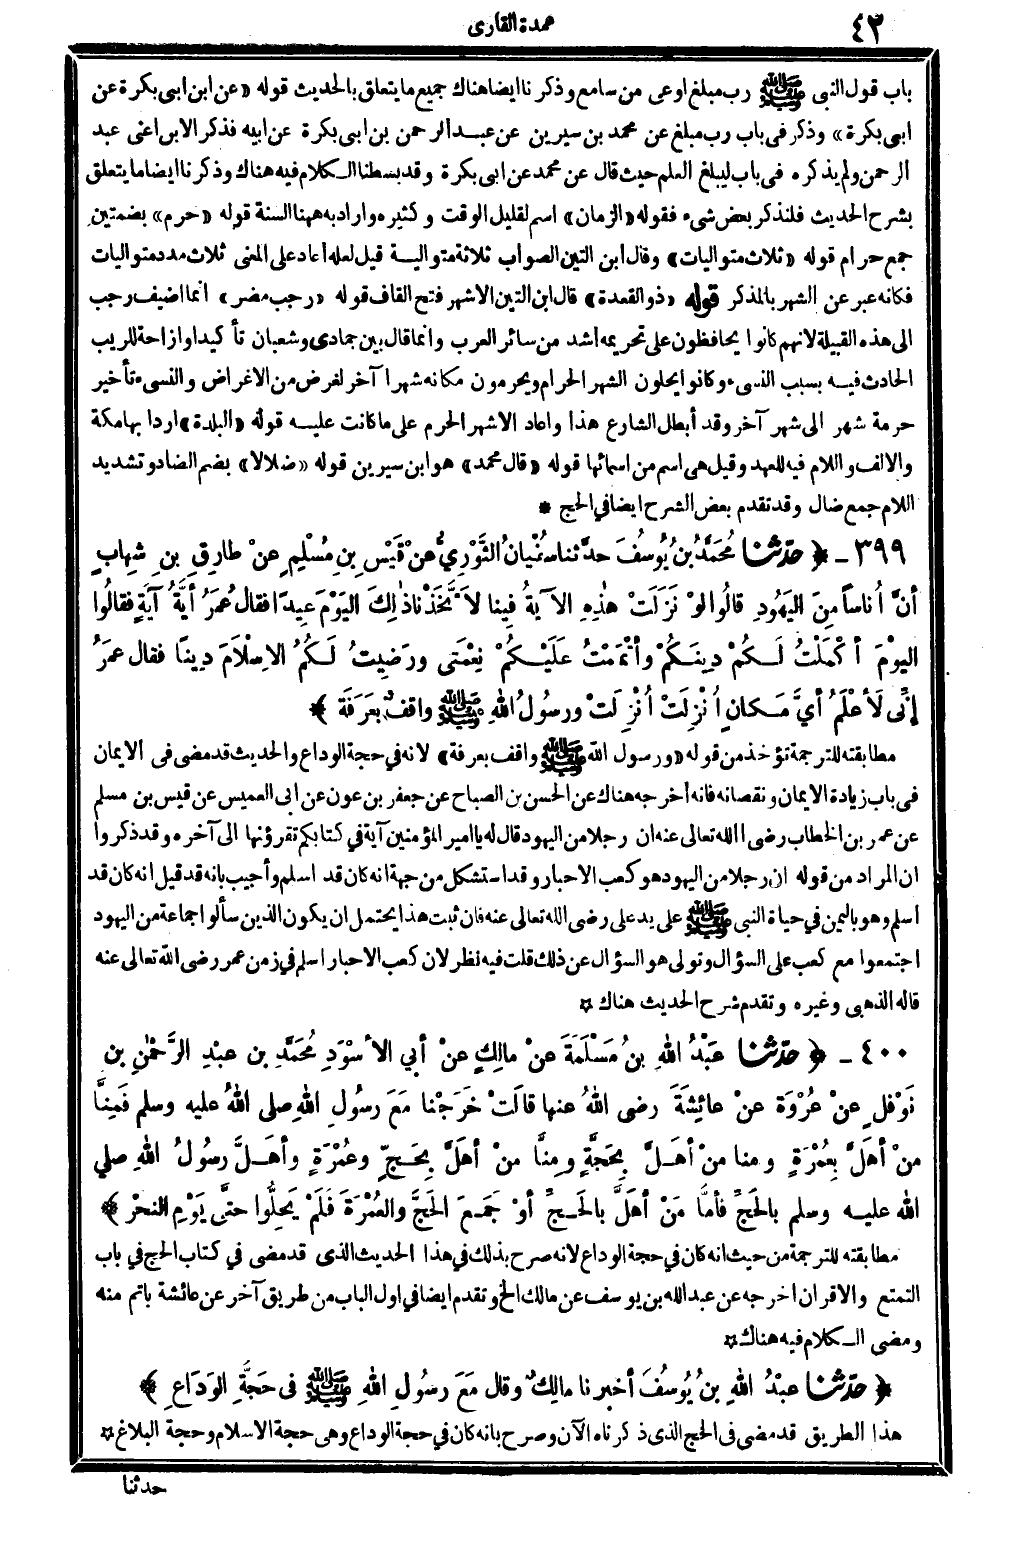 ٤٣
عمدة القارى
باب قول النبى ﷺ رب مبلغ اوعى من سامع وذكرنا ايضا هناك جميع ما يتعلق بالحديث قوله «عن ابن ابى بكرة عن
ابى بكرة» وذكر فى باب رب مبلغ عن محمد بن سيرين عن عبد الرحمن بن ابى بكرة عن ابيه فذكر الابن اعنى عبد
الرحمن ولم يذكره فى باب ليبلغ العلم حيث قال عن محمد عن ابى بكرة وقد بسطنا الكلام فيه هناك وذكرنا ايضا ما يتعلق
بشرح الحديث فلنذكر بعض شىء فقوله «الزمان» اسم لقليل الوقت وكثيره واراد به ههنا السنة قوله «حرم» بضمتين
جمع حرام قوله «ثلاث متواليات» وقال ابن التين الصواب ثلاثة متوالية قيل لعله أعاد على المعنى ثلاث مدد متواليات
فكانه عبر عن الشهر بالمذكر قوله «ذو القعدة» قال ابن التين الاشهر فتح القاف قوله «رجب مضر» انما اضيف رجب
الى هذه القبيلة لانهم كانوا يحافظون على تحريمه أشد من سائر العرب وانما قال بين جمادى وشعبان تأكيدا وازاحة للريب
الحادث فيه بسبب النسىء وكانوا يحلون الشهر الحرام ويحرمون مكانه شهرا آخر لغرض من الاغراض والنسىء تأخير
حرمة شهر الى شهر آخر وقد أبطل الشارع هذا واعاد الاشهر الحرم على ما كانت عليه قوله «البلدة» اراد بها مكة
والالف واللام فيه للعهد وقيل هى اسم من اسمائها قوله «قال محمد» هو ابن سيرين قوله «ضلالا» بضم الضاد وتشديد
اللام جمع ضال وقد تقدم بعض الشرح ايضا في الحج *
٣٩٩ - ﴿ حدّثنا مُحَمَّدُ بنُ يُوسُفَ حدَّثنا سُفْيانُ الثَّوْرِيُّ عنْ قَيْسِ بنِ مُسْلِمٍ عنْ طارِقِ بنِ شِهابٍ
أنَّ أُناساً مِنَ اليَهُودِ قالُوا لوْ نَزَلَتْ هٰذِهِ الآيةُ فِينا لاَتَّخَذْنا ذٰلِكَ اليَوْمَ عِيدًا فقال عُمَرُ أيَّةُ آيَةٍ فقالُوا
اليوْمَ أكْمَلْتُ لَكُمْ دِينَكُمْ وأتْمَمْتُ عَلَيْكُمْ نِعْمَتى ورَضِيتُ لَكُمُ الاِسْلاَمَ دِينًا فقال عمَرُ
إنِّى لَأعْلَمُ أيَّ مَكانٍ أُنْزِلَتْ أُنْزِلَتْ ورسُولُ اللهِ ﷺ واقِفٌ بعَرَفَةَ ﴾
مطابقته للترجمة تؤخذ من قوله «ورسول الله ﷺ واقف بعرفة» لانه في حجة الوداع والحديث قد مضى فى الايمان
فى باب زيادة الايمان ونقصانه فانه أخرجه هناك عن الحسن بن الصباح عن جعفر بن عون عن ابى العميس عن قيس بن مسلم
عن عمر بن الخطاب رضى الله تعالى عنه ان رجلا من اليهود قال له يا امير المؤمنين آية في كتابكم تقرؤنها الى آخره وقد ذكروا
ان المراد من قوله ان رجلا من اليهود هو كعب الاحبار وقد استشكل من جهة انه كان قد اسلم وأجيب بانه قد قيل انه كان قد
اسلم وهو باليمن في حياة النبى ﷺ على يد على رضى الله تعالى عنه فان ثبت هذا يحتمل ان يكون الذين سألوا جماعة من اليهود
اجتمعوا مع كعب على السؤال وتولى هو السؤال عن ذلك قلت فيه نظر لان كعب الاحبار اسلم في زمن عمر رضى الله تعالى عنه
قاله الذهبى وغيره وتقدم شرح الحديث هناك ✩
٤٠٠ - ﴿ حدّثنا عَبْدُ اللهِ بنُ مَسْلَمَةَ عنْ مالِكٍ عنْ أبي الأسْوَدِ مُحَمَّدِ بن عبْدِ الرَّحْمٰنِ بن
نَوْفلٍ عنْ عُرْوَةَ عنْ عائِشةَ رضى اللهُ عنها قالَتْ خرَجْنا مَعَ رسُولِ اللهِ صلى اللهُ عليه وسلم فَمِنَّا
منْ أهَلَّ بِعُمْرَةٍ ومنا منْ أهَلَّ بِحَجَّةٍ ومِنَّا منْ أهَلَّ بِحَجٍّ وعُمْرَةٍ وأهَلَّ رسُولُ اللهِ صلي
الله عليه وسلم بالحَجِّ فأمَّا مَنْ أهَلَّ بالحَجِّ أوْ جَمَعَ الحَجَّ والعُمْرَةَ فَلَمْ يَحِلُّوا حتَّى يَوْمِ النحْر ﴾
مطابقته للترجمة من حيث انه كان في حجة الوداع لانه صرح بذلك في هذا الحديث الذى قد مضى في كتاب الحج في باب
التمتع والاقران اخرجه عن عبد الله بن يوسف عن مالك الخ وتقدم ايضا في اول الباب من طريق آخر عن عائشة باتم منه
ومضى الكلام فيه هناك ✩
﴿ حدّثنا عبْدُ اللهِ بنُ يُوسُفَ أخبرنا مالِكٌ وقال مَعَ رسُولِ اللهِ ﷺ فى حَجَّةِ الوَدَاعِ ﴾
هذا الطريق قد مضى فى الحج الذى ذكرناه الآن وصرح بانه كان في حجة الوداع وهى حجة الاسلام وحجة البلاغ ✩
حدثنا